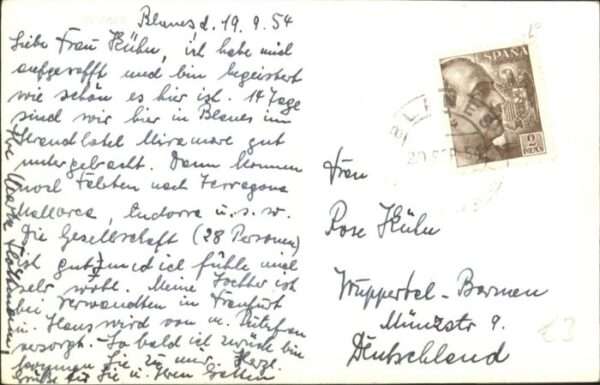 Blanes d. 19.9.54
Liebe Frau Kühn, ich habe mich
aufgerafft und bin begeistert
wie schön es hier ist. 14 Tage
sind wir hier in Blanes im
Strandhotel Miramare gut
untergebracht. Dann kommen
noch Fahrten nach Terragona
Mallorca, Endorra u.s.w.
Die Gesellschaft (28 Personen)
ist gut und ich fühle mich
sehr wohl. Meine Tochter ist
bei Verwandten in Frankfurt
u. Haus wird von m. Putzfrau
versorgt. So bald ich zurück bin
kommen Sie zu mir. Herzl.
Grüße für Sie u. Ihren Gatten
Ihre
ESPAÑA
2
PTAS
BLANES
Frau
Rose Kühn
Wuppertal-Barmen
Münzstr 9.
Deutschland